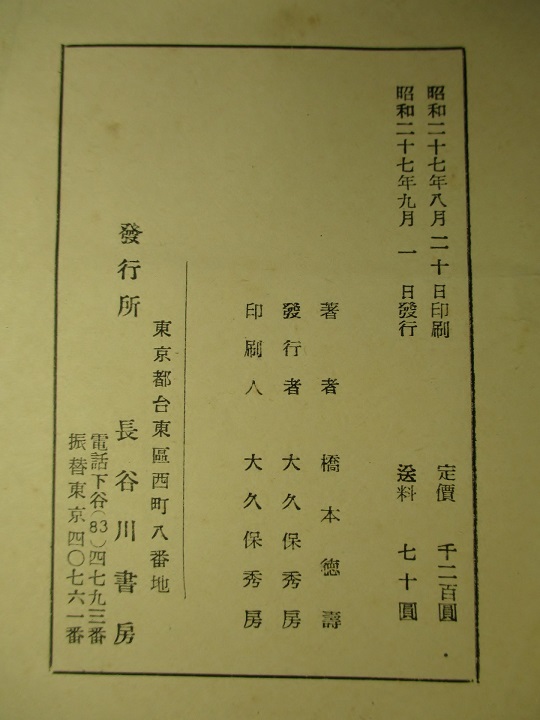 昭和二十七年八月二十日印刷
昭和二十七年九月一日發行
定價 千二百圓
送料 七十圓
著者 橋本徳壽
發行者 大久保秀房
印刷人 大久保秀房
東京都台東區西町八番地
發行所 長谷川書房
電話下谷(83)四七九三番
振替東京四〇七六一番